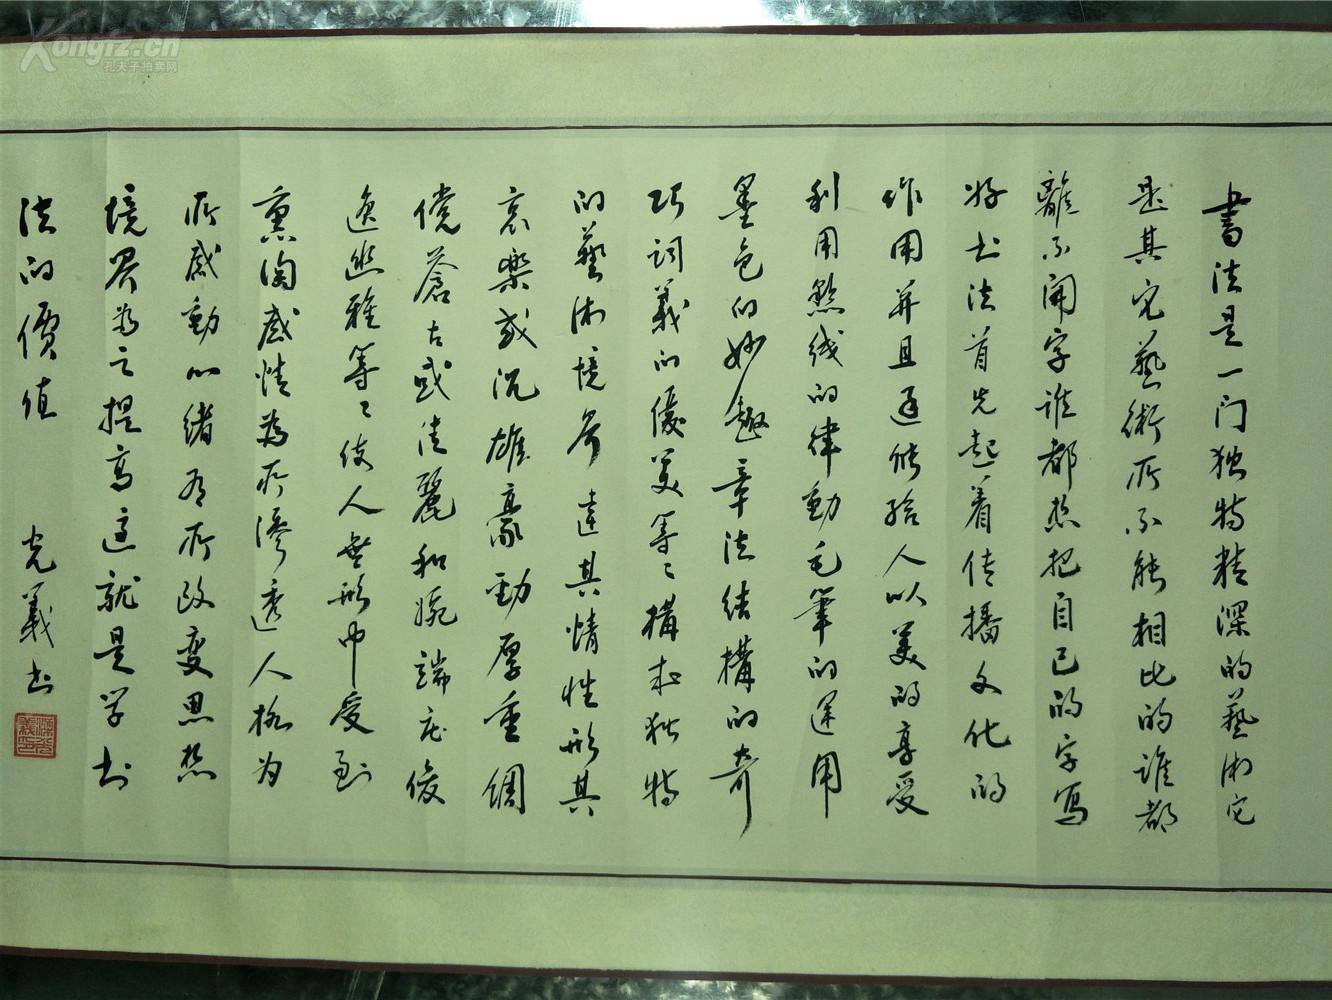 书法是一门独特精深的藝术它
是其它藝術所不能相比的谁都
離不開字谁都想把自己的字写
好书法首先起着传播文化的
作用并且还能给人以美的享受
利用點线的律動毛筆的运用
墨色的妙趣章法结構的奇
巧词義的优美等々構成独特
的藝术境界達其情性形其
哀樂或沉雄豪勁厚重倜
傥蒼古或清麗和婉端庄俊
逸幽雅等々使人無形中受到
熏陶感情為所滲透人格为
所感動心绪有所改变思想
境界為之提高这就是学书
法的價值
光義书
Kongfz.cn
孔夫子拍卖网